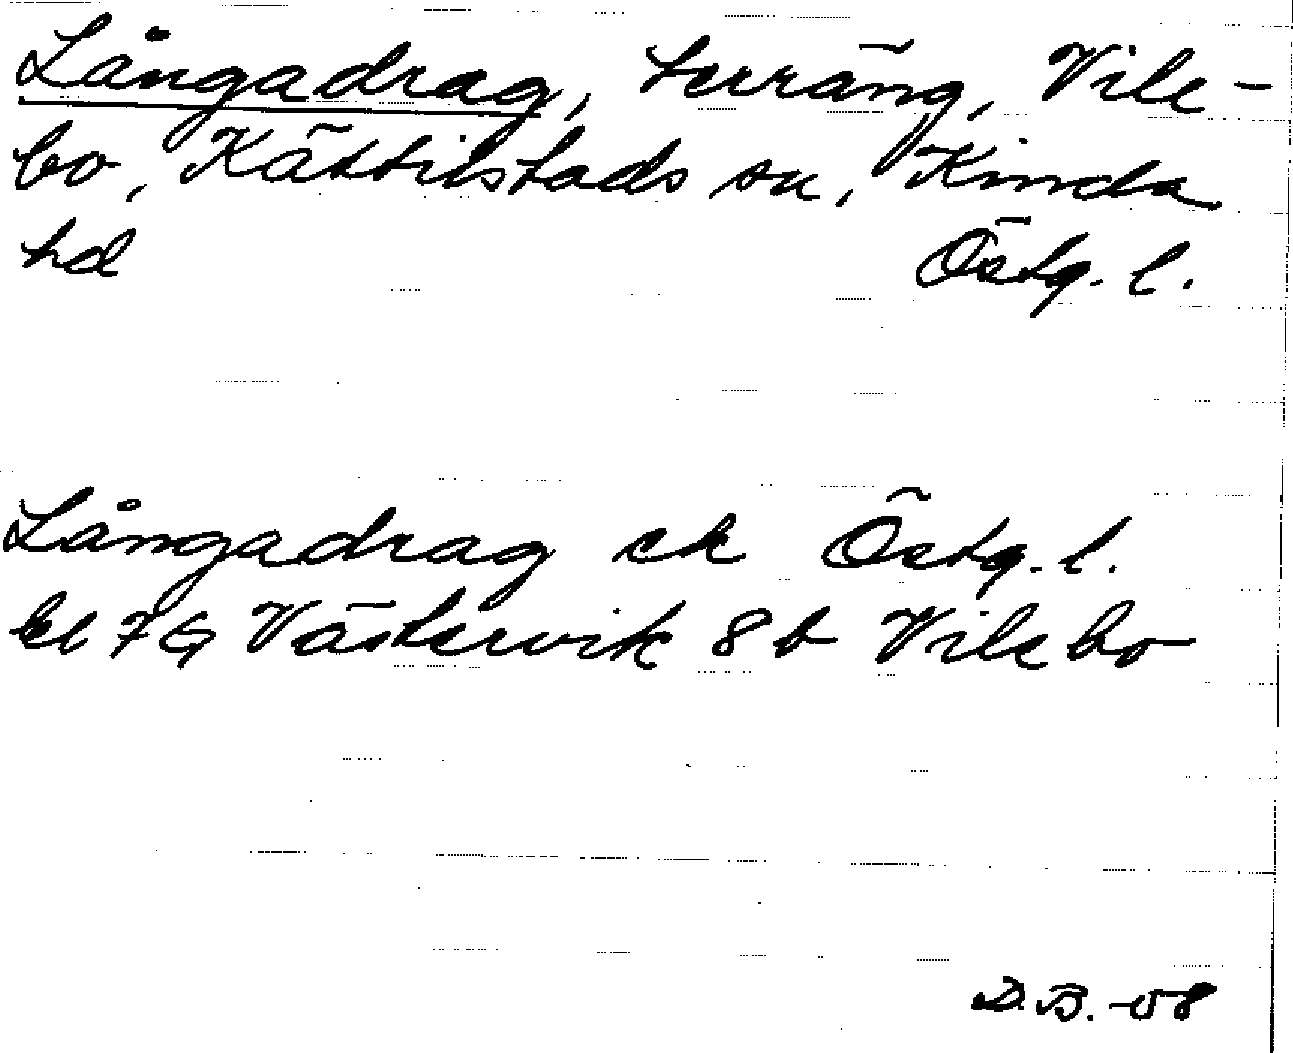 Långadrag, terräng, Vile-
bo, Kättilstads sn, Kinda
hd Östg. l.
Långadrag ek Östg. l.
bl 7G Västervik 8b Vilebo
D.B. -08